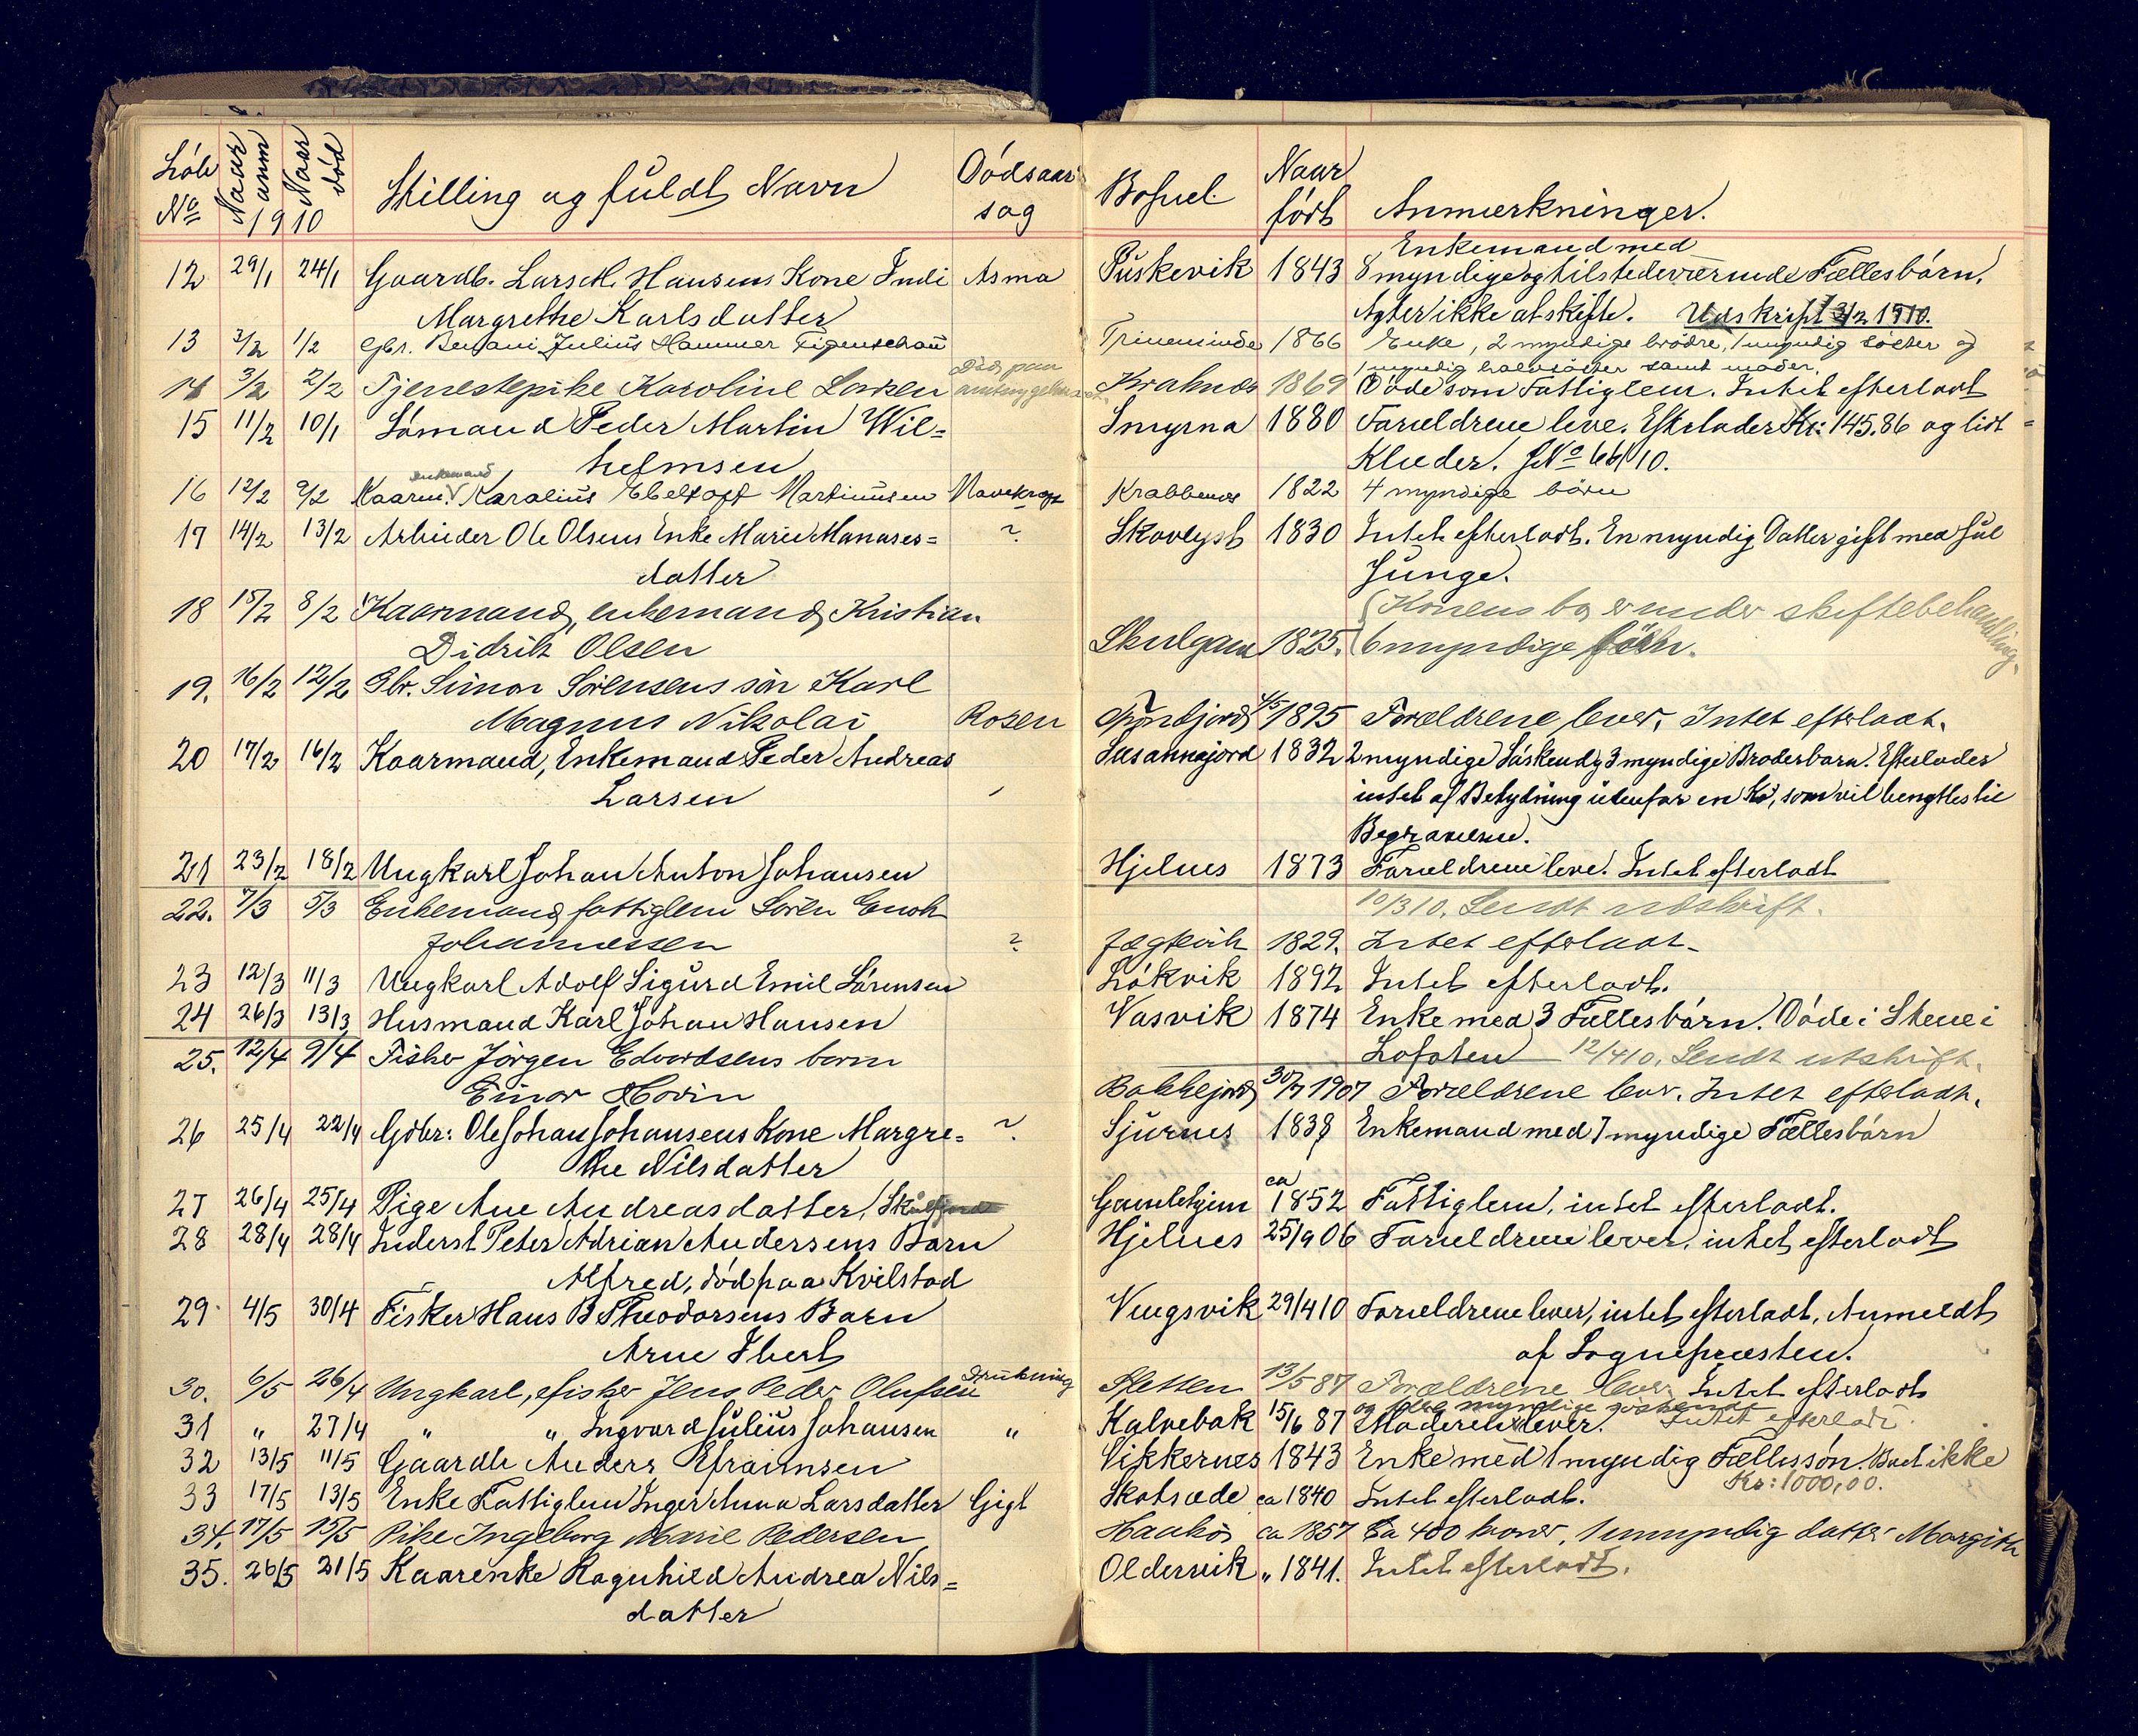 Løb No | Naar anm | Naar død | Stilling og fuldt Navn | Dødsaar | Bosted | Naar født | Anmerkninger.
1910 | sag
Enkemand med
12 29/1 24/1 Gaardb. Lars M. Hansens Kone Indi Asma Puskevik 1843 8 myndige og tilstedeværende Fællesbørn.
Margrethe Karlsdatter Agter ikke at skifte. Udskrift 3/2 1910.
13 3/2 1/2 Gbr. Julius Hammer Figenschau 1866 Enke, 2 myndige brødre, 1 myndig søster og
1 myndig halvsøster samt moder.
Død paa
14 3/2 2/2 Tjenestepike Karoline Larsen amtsygehuset Kraknes 1869 Døde som Fattiglem. Intet efterladt
15 11/2 10/1 Sømand Peder Martin Wil= Smyrna 1880 Forældrene leve. Efterlader Kr: 145.86 og lidt
helmsen Klæder. JNo 66/10.
enkemand
16 12/2 9/2 Kaarm. Karolius Ebeltoft Martinusen Mavekræft Krabbenes 1822 4 myndige børn
17 14/2 13/2 Arbeider Ole Olsens Enke Marie Manases= ? Skovlyst 1830 Intet efterladt. En myndig Datter gift med Jul
datter Junge.
18 15/2 8/2 Kaarmand, enkemand Kristian Konens bo er under skiftebehandling.
Didrik Olsen Skulgam 1825. 6 myndige børn.
19. 16/2 12/2 Gbr. Simon Sørensens søn Karl
Magnus Nikolai Rosen 4/5 1895 Forældrene lever. Intet efterladt.
20 17/2 16/2 Kaarmand, Enkemand Peder Andreas Susannajord 1832 2 myndige Søskend, 3 myndige Broderbørn. Efterlader
Larsen intet af Betydning udenfor en Ko, som vil bengttes til
Begravelsen.
21 23/2 18/2 Ungkarl Johan Anton Johansen Hjelnes 1873 Forældrene leve. Intet efterladt
22. 7/3 5/3 Enkemand fattiglem Søren Enok 10/3 10. Sendt utskrift.
Johannessen ? Jægervik 1829. Intet efterladt.
23 12/3 11/3 Ungkarl Adolf Sigurd Emil Sørensen Løkvik 1892 Intet efterladt.
24 26/3 13/3 Husmand Karl Johan Hansen Vasvik 1874 Enke med 3 Fællesbørn. Døde i Stene i
Lofoten 12/4 10. Sendt utskrift.
25. 12/4 9/4 Fisker Jørgen Edvardsens barn
Einar Hovin Bakkejord 30/7 1907 Forældrene lever. Intet efterladt.
26 25/4 22/4 Gdbr: Ole Johan Johansens Kone Margre= ? Sjurnes 1838 Enkemand med 7 myndige Fællesbørn
the Nilsdatter
ca
27 26/4 25/4 Pige Ane Andreasdatter, Gamlehjem 1852 Fattiglem, intet efterladt.
28 28/4 28/4 Inderst Peter Adrian Andersens Barn Hjelnes 25/9 06 Forældrene lever, intet efterladt
Alfred, død paa Kvilstad
29. 4/5 30/4 Fisker Hans B Theodorsens Barn Vengsvik 29/4 10 Forældrene lever, intet efterladt, Anmeldt
Arne Ibert af Sognepræsten.
30. 6/5 26/4 Ungkarl, fisker Jens Peder Olufsen Drukning Sletten 13/5 87 Forældrene lever Intet efterladt
og myndige søskende
31 " 27/4 " " Ingvard Julius Johansen " Kalvebak 15/6 87 Moderen lever. Intet efterladt.
32 13/5 11/5 Gaardb Anders Efraimsen Vikkernes 1843 Enke med 1 myndig Fællessøn. Boet ikke
Kr: 1000,00.
33 17/5 13/5 Enke Fattiglem Inger Anna Larsdatter Gigt Skotsæde ca 1840 Intet efterladt.
34. 17/5 15/5 Pike Ingeborg Marie Pedersen Haakøs ca 1857 Ca 400 kroner, 1 umyndig datter Margith
35. 26/5 21/5 Kaarenke Ragnhild Andrea Nils= Oldervik " 1841. Intet efterladt.
datter